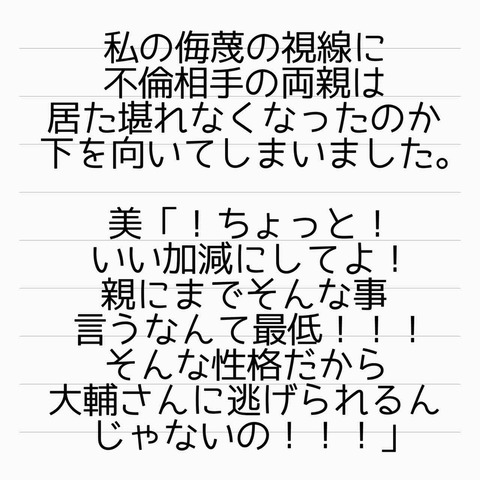 私の侮蔑の視線に
不倫相手の両親は
居た堪れなくなったのか
下を向いてしまいました。
美「！ちょっと！
いい加減にしてよ！
親にまでそんな事
言うなんて最低！！！
そんな性格だから
大輔さんに逃げられるん
じゃないの！！！」